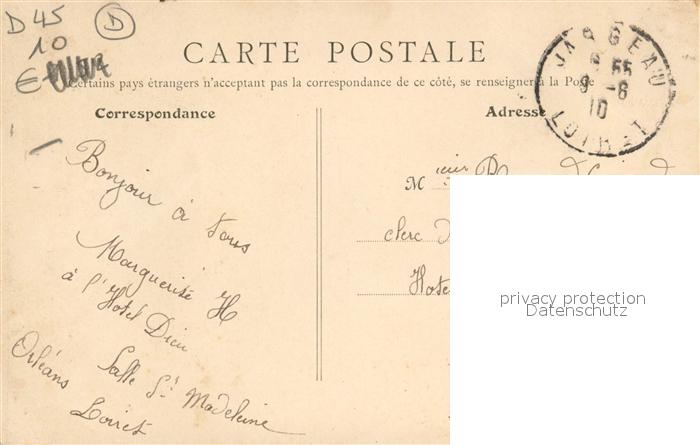 D 45
D
10
€
CARTE POSTALE
Certains pays étrangers n'acceptant pas la correspondance de ce côté, se renseigner à la Poste
JARGEAU
55
9-6
10
LOIRET
Correspondance
Adresse
Bonjour à tous
Marguerite H
à l'Hotel Dieu
Salle St Madeleine
Orléans
Loiret
Mieur
clerc
Hote
privacy protection
Datenschutz